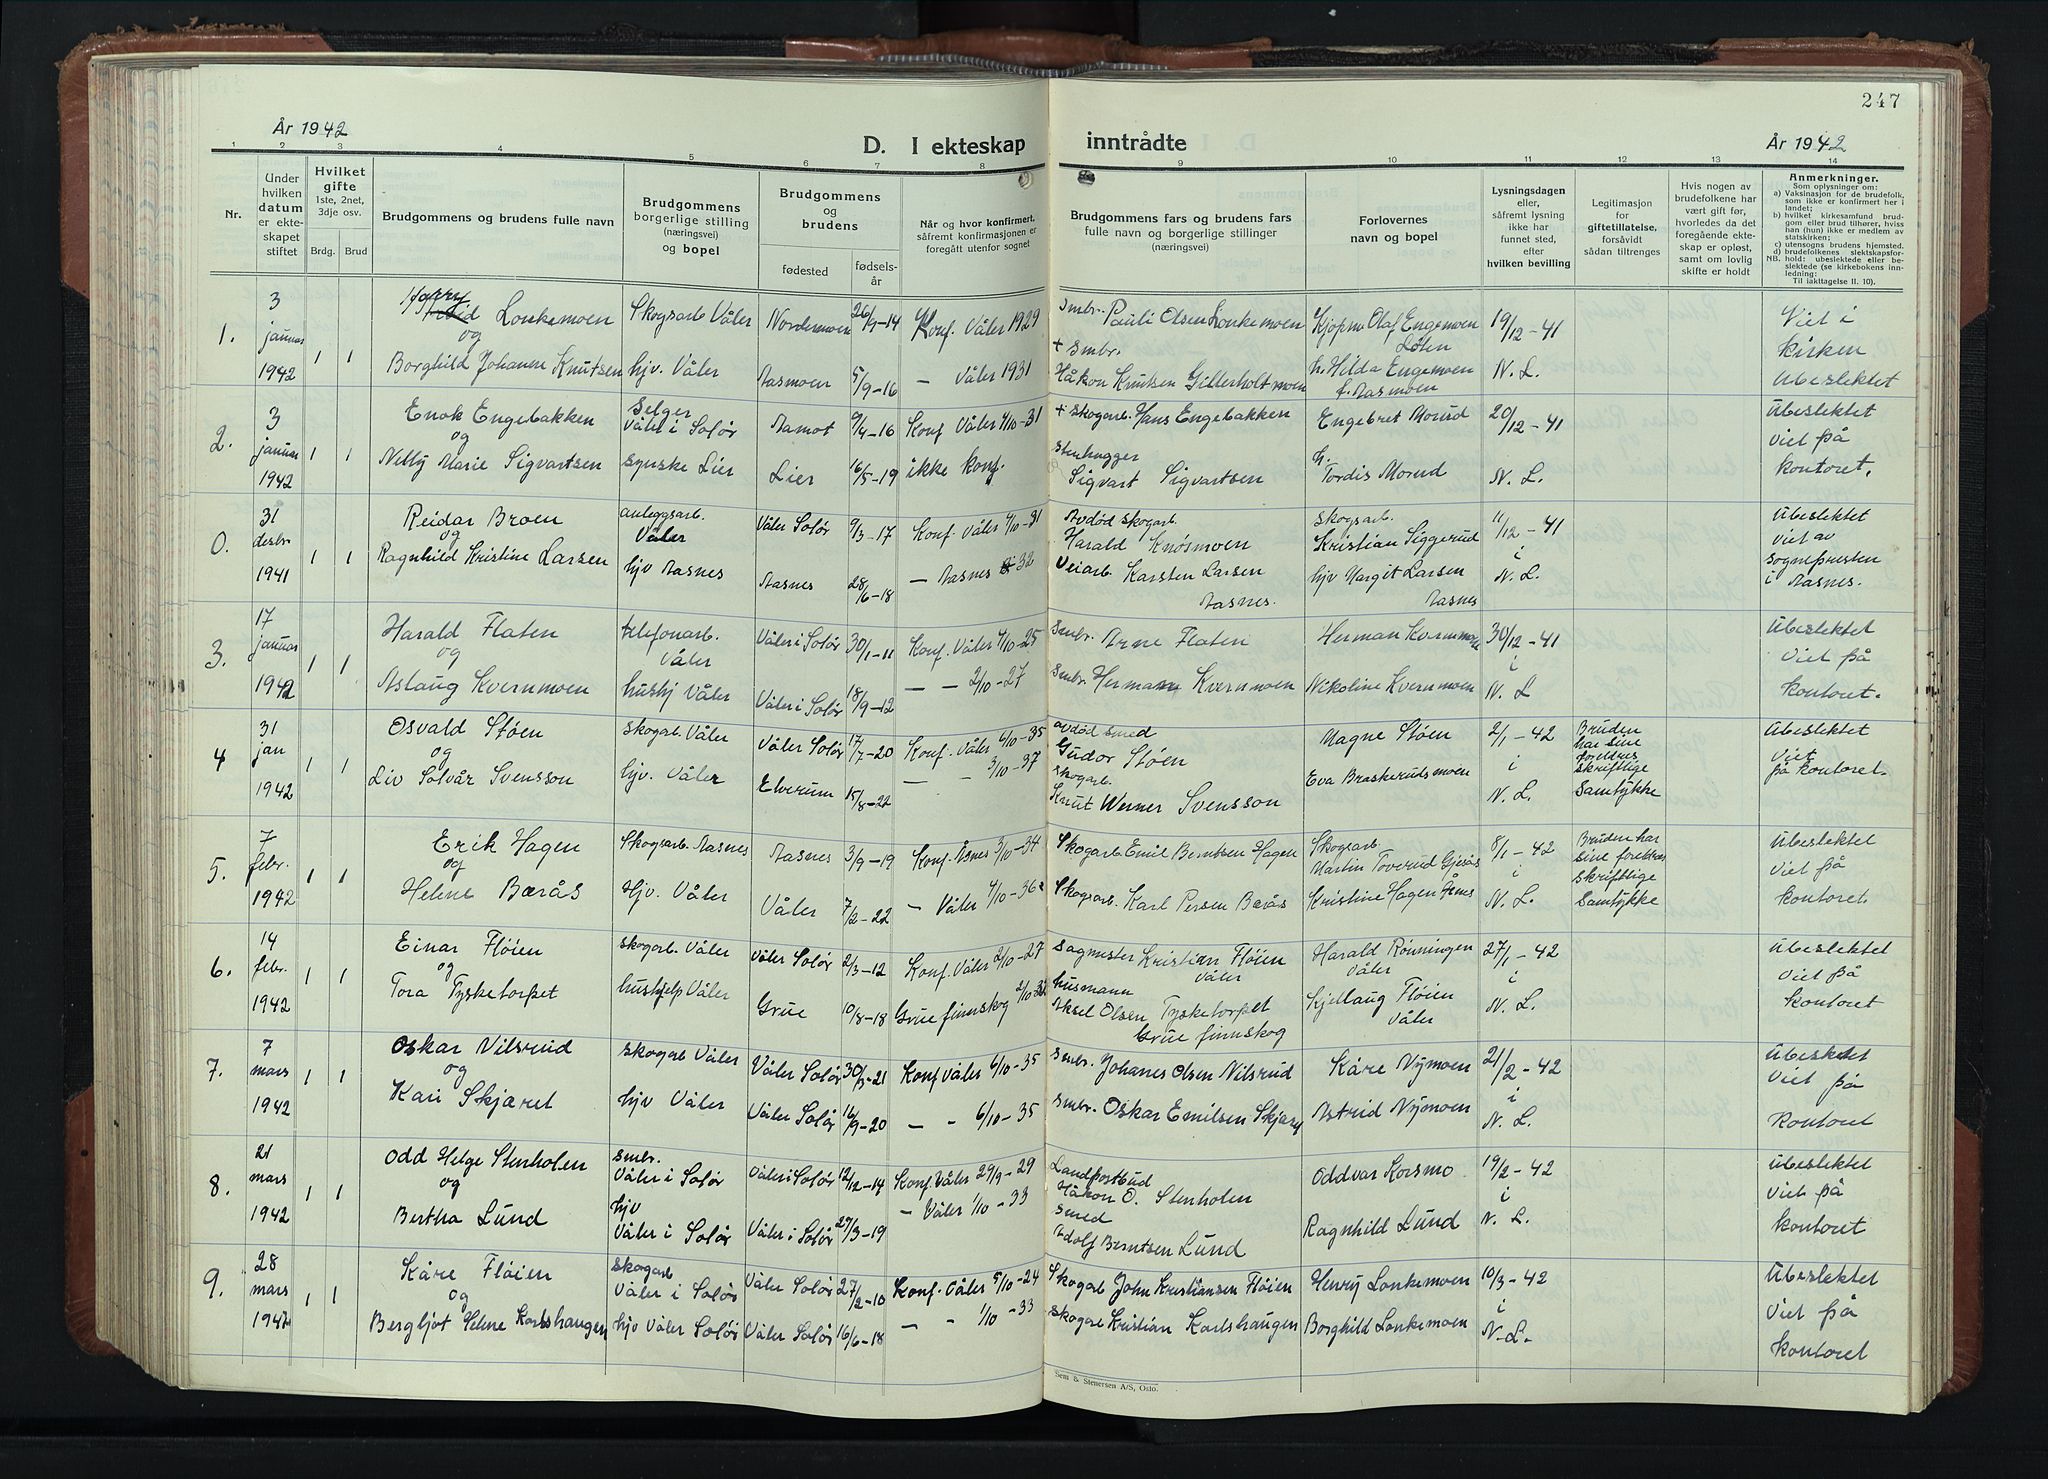 247
År 1942
D. I ekteskap inntrådte
År 1942
1 2 3 4 5 6 7 8 9 10 11 12 13 14
Nr.
Under
hvilken
datum
er ekte-
skapet
stiftet
Hvilket
gifte
1ste, 2net,
3dje osv.
Brdg. Brud
Brudgommens og brudens fulle navn
Brudgommens
borgerlige stilling
(næringsvei)
og bopel
Brudgommens
og
brudens
fødested
fødsels-
år
Når og hvor konfirmert,
såfremt konfirmasjonen er
foregått utenfor sognet
Brudgommens fars og brudens fars
fulle navn og borgerlige stillinger
(næringsvei)
Forlovernes
navn og bopel
Lysningsdagen
eller,
såfremt lysning
ikke har
funnet sted,
efter
hvilken bevilling
Legitimasjon
for
giftetillatelse,
forsåvidt
sådan tiltrenges
Hvis nogen av
brudefolkene har
vært gift før,
hvorledes da det
foregående ekte-
skap er opløst,
samt om lovlig
skifte er holdt
Anmerkninger.
Som oplysninger om:
a) Vaksinasjon for de brudefolk,
som ikke er konfirmert her i
landet;
b) hvilket kirkesamfund brud-
gom eller brud tilhører, hviss
han (hun) ikke er medlem av
statskirken;
c) utensogns brudens hjemsted.
d) brudefolkenes slektskapsfor-
NB. hold: ubeslektede eller be-
slektede (se kirkebokens inn-
ledning:
Til iakttagelse II. 10).
1.
3
januar
1942
1 1
Harry
Lonkemoen
og
Borghild Johanne Knutsen
Skogsarb Våler
hjv. Våler
Nordermoen 26/9-14
Aasmoen 5/9-16
Konf. Våler 1929
— Våler 1931
Smbr. Pauli Olsen Lonkemoen
+ Smbr.
Håkon Knutsen Gillerholtmoen
Olaf Engemoen
Løten
h. Hilda Engemoen
f. Aasmoen
19/12-41
N. L.
Viet i
kirken
Ubeslektet
2.
3
januar
1942
1 1
Enok Engebakken
og
Nelly Marie Sigvartsen
Selger
Våler i Solør
syerske Lier
Aamot 9/4-16
Lier 16/5-19
Konf Våler 4/10-31
ikke konf.
+ Skogarb. Hans Engebakken
Stenhugger
Sigvart Sigvartsen
Engebret Morud
h.
Tordis Morud
20/12-41
N. L.
Ubeslektet
Viet på
kontoret.
0.
31
desbr
1941
1 1
Reidar Broen
og
Ragnhild Kristine Larsen
anleggsarb.
Våler
hjv Aasnes
Våler Solør 9/3-17
Aasnes 28/6-18
Konf. Våler 4/10-31
— Aasnes 32
Avdød skogarb.
Harald Knøsmoen
Veiarb. Karsten Larsen
Aasnes.
skogsarb.
Kristian Siggerud
hjv Margit Larsen
Aasnes
11/12-41
i
N. L.
Ubeslektet
Viet av
sognepresten
i Aasnes.
3.
17
januar
1942
1 1
Harald Flaten
og
Aslaug Kvernmoen
telefonarb.
Våler
hushj Våler
Våler i Solør 30/1-11
Våler i Solør 18/9-12
Konf. Våler 4/10-25
— — 2/10-27
Smbr. Arne Flaten
Smbr. Herman Kvernmoen
Herman Kvernmoen
Nikoline Kvernmoen
30/12-41
i
N. L
Ubeslektet
Viet på
kontoret.
4
31
jan
1942
1 1
Osvald Støen
og
Liv Solvår Svensson
skogarb. Våler
hjv. Våler
Våler Solør 17/7-20
Elverum 15/8-22
Konf. Våler 6/10-35
— — 3/10-37
avdød smed
Gudor Støen
skogarb.
Knut Werner Svensson
Magne Støen
Eva Braskerudsmoen
2/1-42
i
N. L.
Bruden
har sine
foreldres
skriftlige
Samtykke
Ubeslektet
Viet
på kontoret.
5.
7
febr.
1942
1 1
Erik Hagen
og
Helene Bærås
Skogsarb Aasnes
Hjv. Våler
Aasnes 3/9-19
Våler 7/2-22
Konf. Åsnes 3/10-34
— Våler 4/10-36
Skogarb Emil Berntsen Hagen
Skogsarb. Karl Persen Bærås
Skogsarb.
Martin Toverud Gjesås
Kristine Hagen Åsnes
8/1-42
i
N. L.
Bruden har
sine foreldres
skriftlige
Samtykke
Ubeslektet
Viet på
kontoret.
6.
14
febr.
1942
1 1
Einar Fløien
og
Tora Tysketorpet
skogarb. Våler
hushjelp Våler
Våler Solør 2/3-12
Grue 10/8-18
Konf. Våler 2/10-27
Grue finnskog 2/10-32
Sagmester Kristian Fløien
Våler
husmann
Aksel Olsen Tysketorpet
Grue finnskog
Harald Rønningen
Våler
Kjellaug Fløien
Våler
27/1-42
i
N. L.
Ubeslektet
Viet på
kontoret
7.
7
mars
1942
1 1
Oskar Nilsrud
og
Kari Skjæret
skogarb Våler
hjv Våler
Våler Solør 30/9-21
Våler Solør 16/9-20
Konf Våler 6/10-35
— - 6/10-35
Smbr. Johanes Olsen Nilsrud
Smbr. Oskar Emilsen Skjæret
Kåre Nymoen
Astrid Nymoen
21/2-42
i
N. L.
Ubeslektet
Viet på
Kontoret
8.
21
mars
1942
1 1
Odd Helge Stenholen
og
Bertha Lund
smbr.
Våler i Solør
hjv
Våler i Solør
Våler i Solør 12/12-14
Våler i Solør 27/3-19
Konf. Våler 29/9-29
— Våler 1/10-33
Landpostbud
Håkon O. Stenholen
smed
Adolf Berntsen Lund
Oddvar Korsmo
Ragnhild Lund
19/2-42
i
N. L.
Ubeslektet
Viet på
Kontoret
9.
28
mars
1942
1 1
Kåre Fløien
og
Bergljot Helene Karlshaugen
skogarb
Våler i Solør
hjv Våler Solør
Våler Solør 27/2-10
Våler Solør 16/6-18
Konf. Våler 5/10-24
— - 1/10-33
Skogarb John Kristiansen Fløien
Skogarb Kristian Karlshaugen
Henry Lonkemoen
Borghild Lonkemoen
10/3-42
i
N.L.
Ubeslektet
Viet på
kontoret
Sem & Stenersen A/S, Oslo.